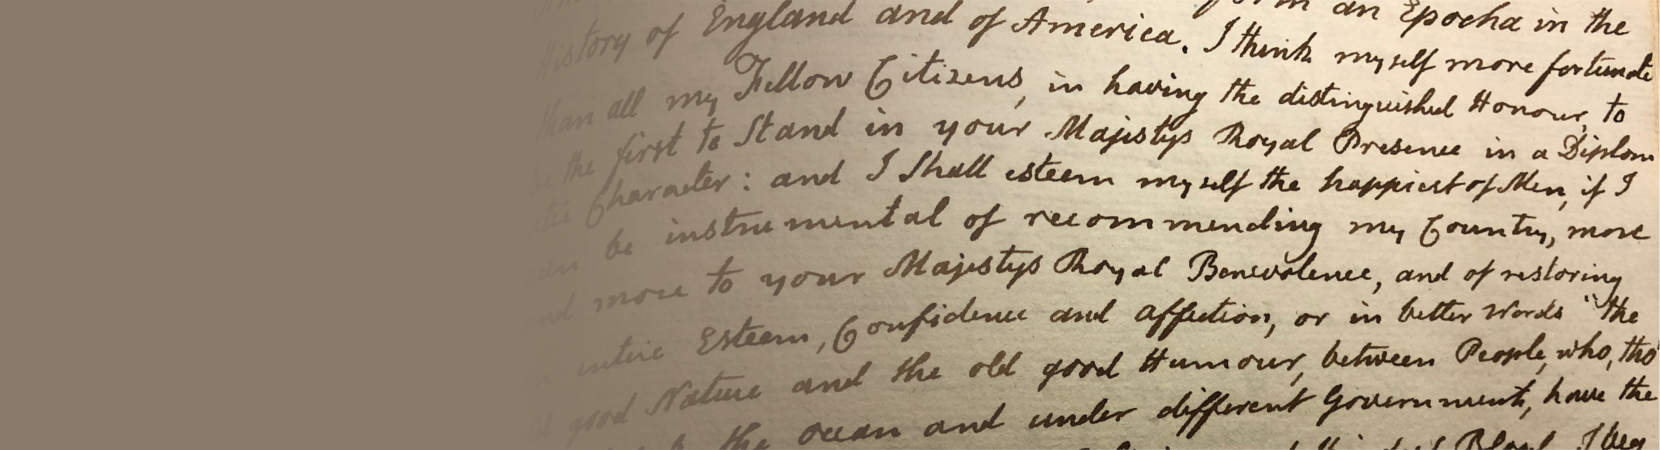 form an Epocha in the
History of England and of America. I think myself more fortunate
than all my Fellow Citizens, in having the distinguished Honour, to
be the first to Stand in your Majestys Royal Presence in a Diplom
Character: and I Shall esteem myself the happiest of Men, if I
can be instrumental of recommending my Country, more
and more to your Majestys Royal Benevolence, and of restoring
entire Esteem, Confidence and affection, or in better Words "the
old good Nature and the old good Humour, between People, who, tho'
the ocean and under different Governments, have the
Blood. I beg